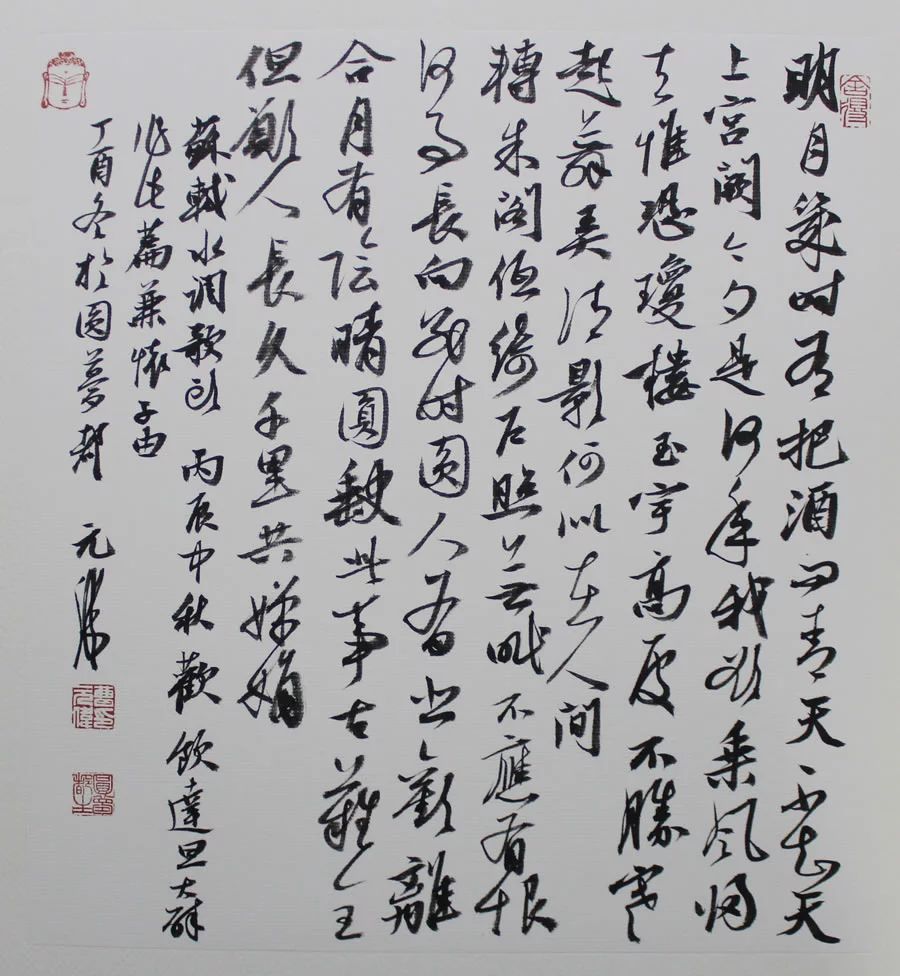 明月幾時有把酒問青天不知天
上宮闕今夕是何年我欲乘風歸
去惟恐瓊樓玉宇高處不勝寒
起舞弄清影何似在人間
轉朱閣低綺戶照無眠不應有恨
何事長向別時圓人有悲歡離
合月有陰晴圓缺此事古難全
但願人長久千里共嬋娟
蘇軾水調歌頭 丙辰中秋歡飲達旦大醉
作此篇兼懷子由
丁酉冬於圓夢 元偉